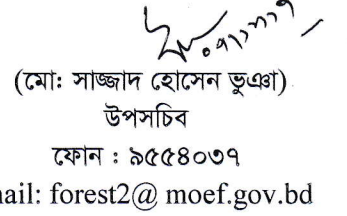 (মো: সাজ্জাদ হোসেন ভুঞা)
উপসচিব
ফোন : ৯৫৫৪০৩৭
mail: forest2@ moef.gov.bd